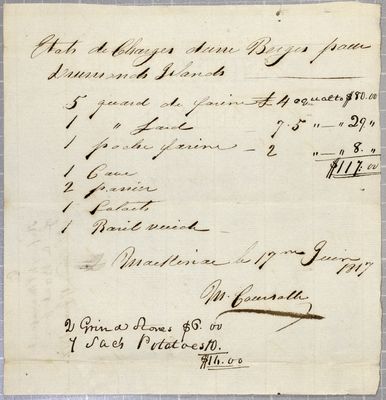 Etats de Charges dune Barges pour
Drumonds Islands
5 quard de farine £ 4 $80.00
1 " Lard 7.5 " — " 29 "
1 poche farine — 2 " — " 8. "
$117.00
1 Cave
2 panier
1
1 Baril
Mackinac le 17me Juin
1817
M.
2 Grind Stones $6.00
7 Sack Potatoes 10.
$16.00